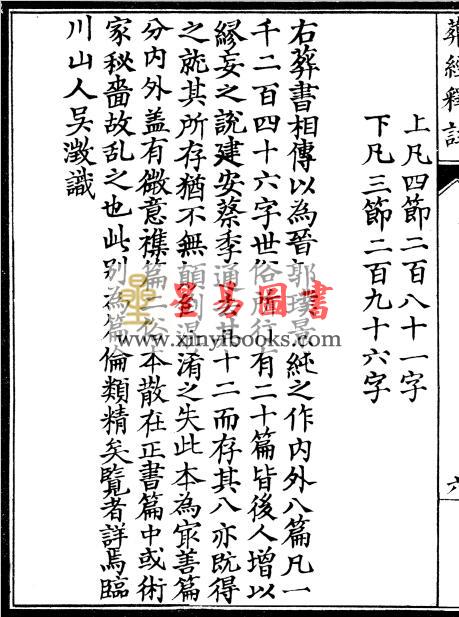 葬經釋註
六
上凡四節二百八十一字
下凡三節二百九十六字
右葬書相傳以為晉郭璞景純之作内外八篇凡一
千二百四十六字世俗所行有二十篇皆後人增以
繆妄之說建安蔡季通去其十二而存其八亦既得
之就其所存猶不無顛倒混淆之失此本為㝡善篇
分内外盖有微意襍篇二俗本散在正書篇中或術
家秘嗇故乱之也此别為篇倫類精矣覽者詳焉臨
川山人吳澂識
星易圖書
www.xinyibooks.com